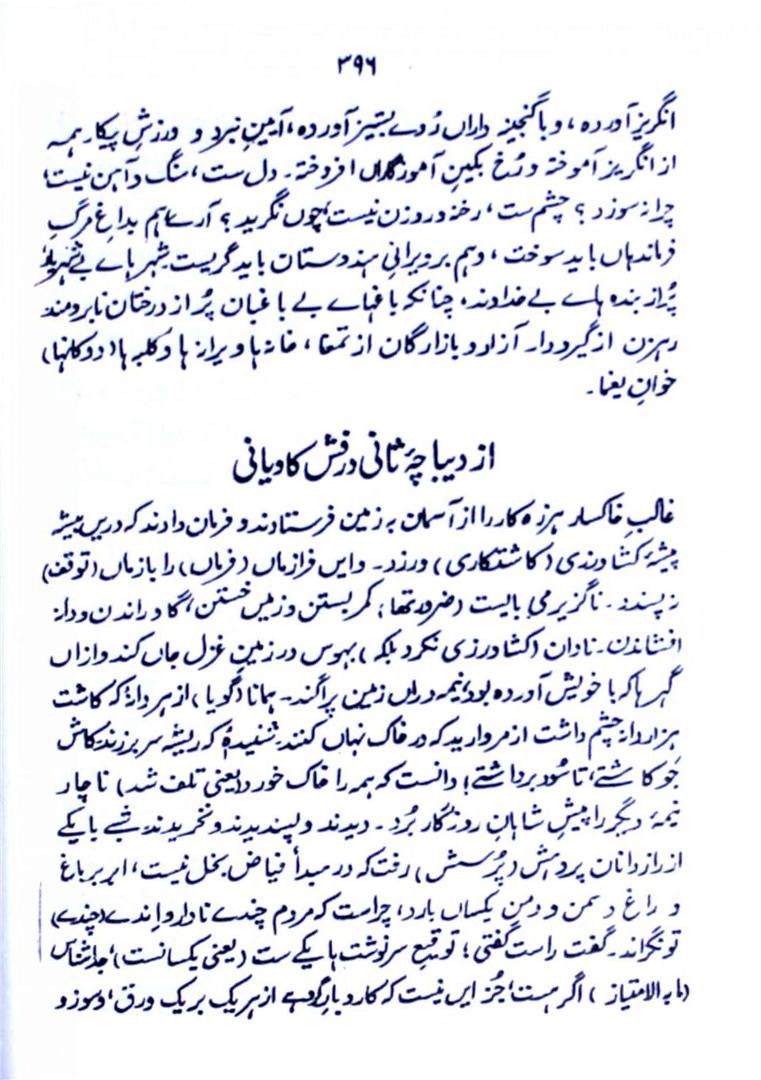 ۳۹۶
انگریز آوردہ، و با گنجینہ داراں رُوے بستیز آوردہ، آیینِ نبرد و ورزشِ پیکار ہمہ
از انگریز آموختہ و رُخ بکینِ آموزگاراں افروختہ۔ دل ست، سنگ و آہن نیست،
چرا نہ سوزد؟ چشم ست، رخنہ و روزن نیست، چوں نگرید؟ آرے ہم بداغِ مرگِ
فرماندہاں باید سوخت، و ہم بر ویرانیِ ہندوستان باید گریست۔ شہر ہاے بے شہریار
پُر از بندہ ہاے بے خداوند، چنانکہ باغہاے بے باغبان پُر از درختان نابرومند
رہزن از گیرودار آزاد و بازارگان از تمغا، خانہ ہا ویرانہ ہا و کلبہ ہا (دوکانہا)
خوانِ یغما۔
از دیباچۂ ثانی درفش کاویانی
غالبِ خاکسار ہرزہ کار را از آسمان بہ زمین فرستادند و فرمان دادند کہ دریں بیشہ
پیشۂ کشاورزی (کاشتکاری) ورزد۔ و ایں فرازماں (فرماں) را بازماں (توقف)
نہ پسندد۔ ناگزیر می بایست (ضرور تھا) کمر بستن و زمیں خستن، گاو راندن و دانہ
افشاندن۔ نادان (کشاورزی نکرد بلکہ) بہوس در زمینِ غزل جاں کند و ازاں
گہرہا کہ با خویش آوردہ بود، نیمہ دراں زمین پراگند۔ ہمانا (گویا) از ہر دانۂ کہ کاشت
ہزار دانہ چشم داشت از مروارید کہ در خاک نہاں کنند، نشنیدۂ کہ ریشہ سر بر زند، کاش
جَو کاشتے، تا سُود برداشتے؛ دانست کہ ہمہ را خاک خورد (یعنی تلف شد) ناچار
نیمۂ دیگر را پیشِ شاہانِ روزگار بُرد۔ دیدند و پسندیدند و نخریدند۔ شبے با یکے
از رازدانان پردہش (پُرسش) رفت کہ در مبدأ فیاض بخل نیست، ابر بر باغ
و راغ و سمن و دمن یکساں بارد، چراست کہ مردم چندے نادار و اندے (چندے)
تونگراند۔ گفت راست گفتی؛ توقیعِ سرنوشت ہا یکے ست (یعنی یکسانست)، جدا شناس
(مابہ الامتیاز) اگر ہست، جُز ایں نیست کہ کاروبارِ گروہے از ہر یک بر یک ورق، و سوز و